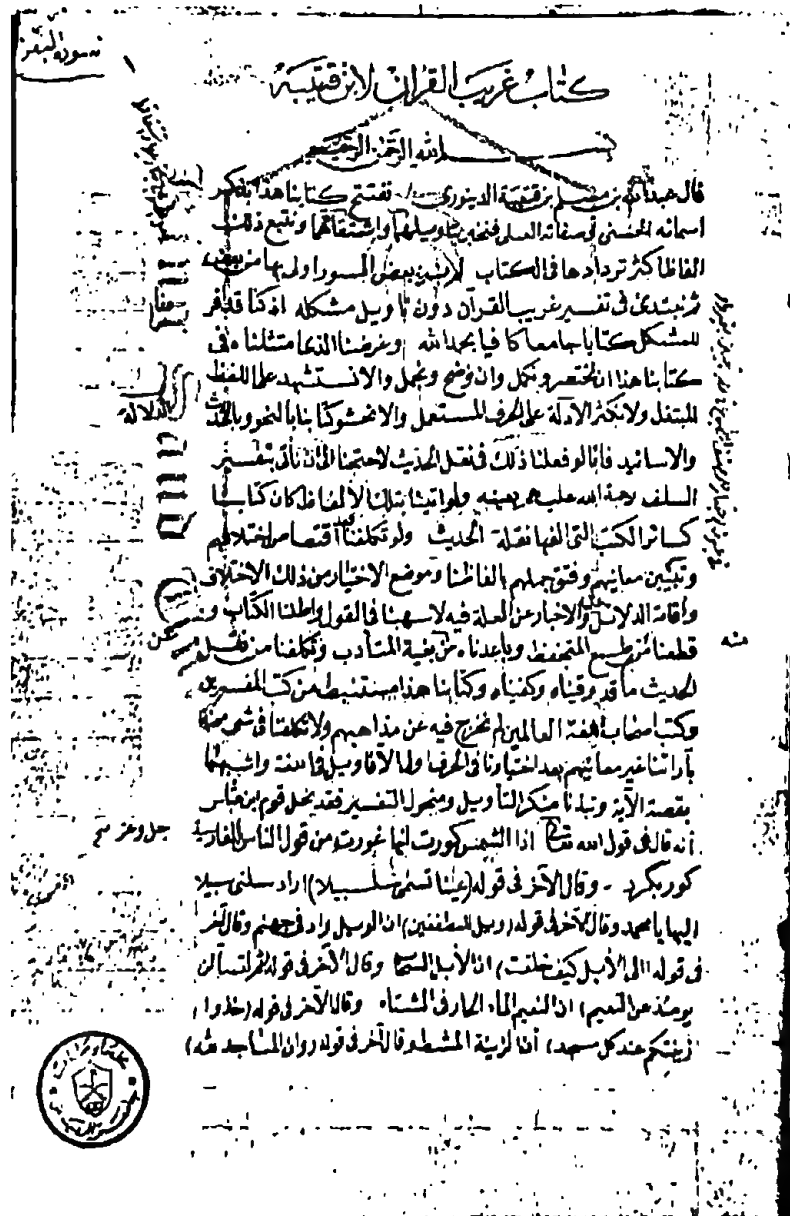 كتاب غريب القرآن لابن قتيبة
بسم الله الرحمن الرحيم
قال عبدالله بن مسلم بن قتيبة الدينوري نفتتح كتابنا هذا بذكر
اسمائه الحسنى وصفاته العلى فنخبر بتاويلهما واشتقاقهما ونتبع ذلك
الفاظا كثر تردادها فى الكتاب لم نر بعض السور اولى بها من بعض
ثم نبتدئ فى تفسير غريب القرآن دون تاويل مشكله اذ كنا قد افردنا
للمشكل كتابا جامعا كافيا بحمد الله وغرضنا الذى امتثلناه فى
كتابنا هذا ان نختصر ونكمل وان نوضح ونجمل والا نستشهد على اللفظ
المبتذل ولا نكثر الادلة على الحرف المستعمل والا نحشو كتابنا بالنحو وبالحديث
والاسانيد فانا لو فعلنا ذلك فى نقل الحديث لاحتجنا الى ان نأتى بتفسير
السلف رحمة الله عليهم بعينه ولو اتينا بتلك الالفاظ كان كتابنا
كسائر الكتب التى الفها نقلة الحديث ولو تكلفنا بعد اقتصاص اختلافهم
وتبيين معانيهم وفتق جملهم بالفاظنا وموضع الاختيار من ذلك الاختلاف
واقامة الدلائل عليه والاخبار عن العلة فيه لاسهبنا فى القول واطلنا الكتاب و
قطعنا منه طمع المتحفظ وباعدناه من بغية المتأدب وتكلفنا من نقل
الحديث ما قد وقيناه وكفيناه وكتابنا هذا مستنبط من كتب المفسرين
وكتب اصحاب اللغة العالمين لم نخرج فيه عن مذاهبهم ولا تكلفنا فى شئ منه
بآرائنا غير معانيهم بعد اختيارنا فى الحرف اولى الاقاويل فى اللغة واشبهها
بقصة الآية ونبذنا منكر التأويل ومنحول التفسير فقد نحل قوم ابن عباس
أنه قال فى قول الله تعالى اذا الشمس كورت انها غورت من قول الناس بالفارسية
كور بكرد - وقال الآخر فى قوله (عينا تسمى سلسبيلا) اراد سلنى سبيلا
اليها يا محمد وقال الآخر فى قوله (ويل للمطففين) ان الويل واد فى جهنم وقال آخر
فى قوله (الى الأبل كيف خلقت) ان الأبل السحاب وقال الآخر فى قوله (ثم لتسألن
يومئذ عن النعيم) ان النعيم الماء الحار فى الشتاء وقال الآخر فى قوله (خذوا
زينتكم عند كل مسجد) أن الزينة المشط وقال آخر فى قوله (وان المساجد لله)
الدلالة
منه
جل وعز صح